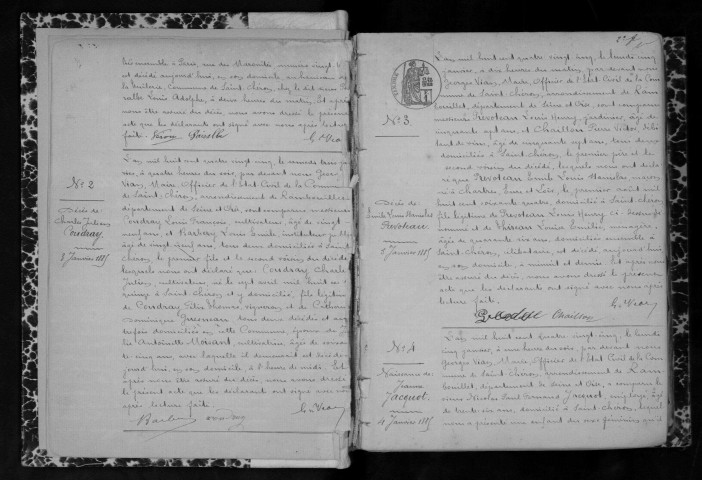 lié ensemble à Paris, rue des Marseille numéro vingt
et décédé aujourd'hui, en son domicile au hameau de
la Tuilerie, commune de Saint Chéron,
Louis Adolphe, à deux heures du matin, Et après
nous être assuré du décès, nous avons dressé le présent
acte que les déclarants ont signé avec nous après lecture
faite.
N° 2
Décès de
Charles Julien
Coudray
3 Janvier 1885
L'an mil huit cent quatre vingt cinq, le samedi trois jan-
vier, à quatre heures du soir, par devant nous Georges
Vian, Maire Officier de l'Etat Civil de la Commune
de Saint Chéron, arrondissement de Rambouillet
département de Seine et Oise, sont comparus messieurs
Coudray Louis François, cultivateur, âgé de vingt
neuf ans et Barbery Louis Emile, instituteur public
âgé de vingt neuf ans, tous deux domiciliés à Saint
Chéron, le premier fils et le second voisin du décédé
lesquels nous ont déclaré que Coudray Charles
Julien, cultivateur, né le sept avril mil huit cent
quinze à Saint Chéron et y domicilié, fils légitime
de Coudray Thomas, vigneron, et de Catherine
tous deux décédés et au-
trefois domiciliés en cette Commune, époux de
Antoinette Moisant, cultivatrice, âgée de
cinq ans, avec laquelle il demeurait est décédé
aujourd'hui, en son domicile, à heure de midi. Et
après nous être assuré du décès, nous avons dressé
le présent acte que les déclarants ont signé avec nous
après lecture faite.
Barbery Coudray G. Vian
N° 3
Décès de
Emile Louis Stanislas
Prevoteau
5 Janvier 1885
L'an mil huit cent quatre vingt cinq, le lundi cinq
janvier, à dix heures du matin, par devant nous
Georges Vian, Maire, Officier de l'Etat Civil de la Com-
mune de Saint Chéron, arrondissement de Ram-
bouillet, département de Seine et Oise, sont comparus
messieurs Prevoteau Louis Henry, jardinier, âgé de
cinquante sept ans, et Chaillon Pierre Victor, débi-
tant de vins, âgé de cinquante sept ans, tous deux
domiciliés à Saint Chéron, le premier père et le
second voisin du décédé, lesquels nous ont décla-
ré que Prevoteau Emile Louis Stanislas, maçon,
né à Chartres, Eure et Loir, le premier août mil
huit cent soixante quatre, domicilié à Saint Chéron,
fils légitime de Prevoteau Louis Henry, ci-dessus
nommé et de Louise Emilie, ménagère,
âgée de quarante six ans, domiciliés ensemble à
Saint Chéron, célibataire, est décédé aujourd'hui
en son domicile, à minuit et demie. Et après nous
être assuré du décès, nous avons dressé le présent
acte que les déclarants ont signé avec nous après
lecture faite.
Chaillon G. Vian
N° 4
Naissance de
Jeanne
Jacquot
4 Janvier 1885
L'an mil huit cent quatre vingt cinq, le lundi
cinq janvier, à onze heures du soir, par devant nous
Georges Vian, Maire, Officier de l'Etat Civil de la Com-
mune de Saint Chéron, arrondissement de Ram-
bouillet, département de Seine et Oise, a comparu le
sieur Nicolas Paul Fernand Jacquot, employé, âgé
de trente six ans, domicilié à Saint Chéron, lequel
nous a présenté une enfant du sexe féminin qu'il